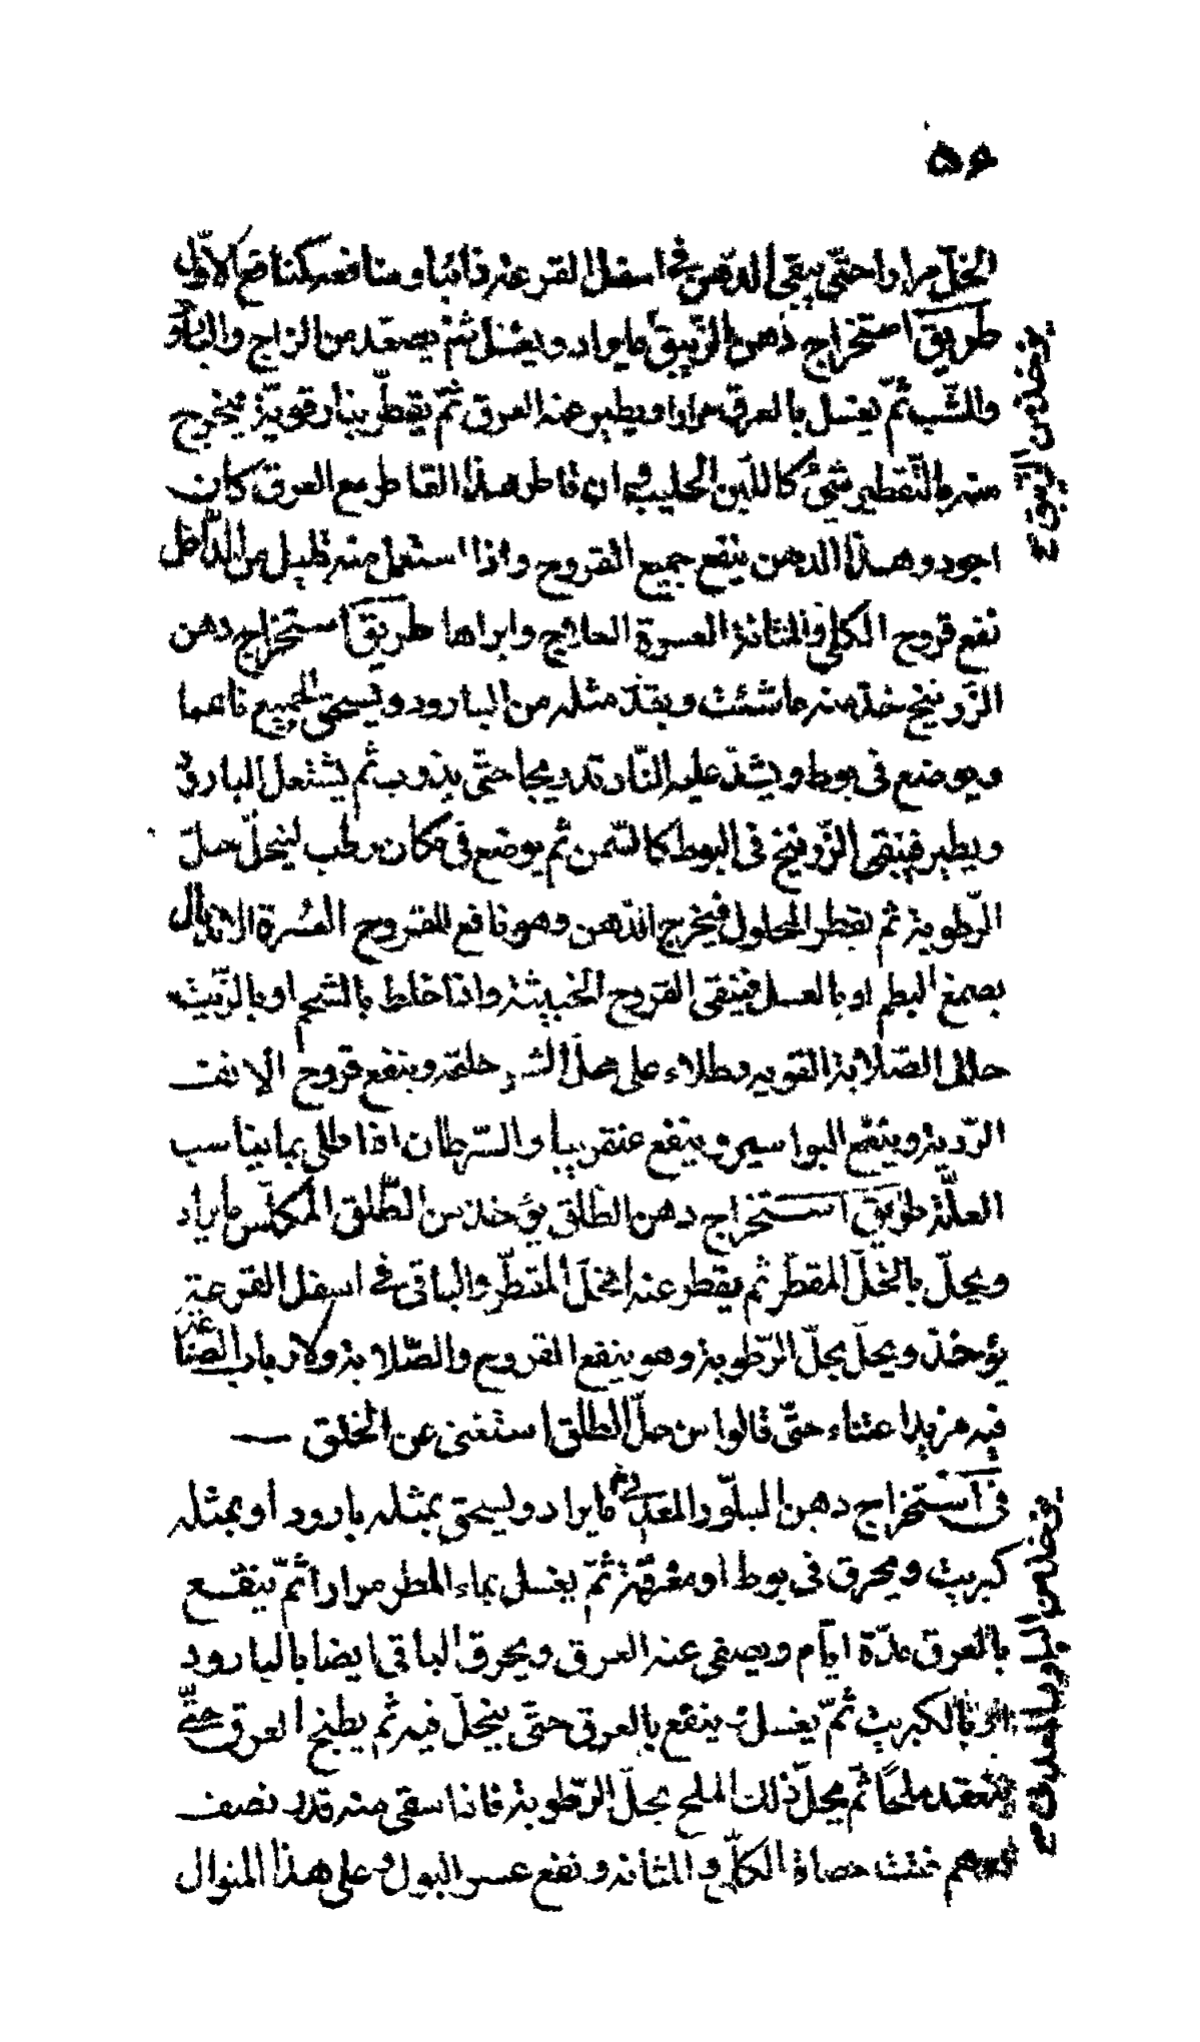 ٥٦
الخلّ مرارا حتّى يبقى الدّهن في اسفل القرعة ذائبا ومنافعه كمنافع الاوّل
طريق استخراج دهن الزّيبق ما يراد ويغسل ثمّ يصعّد من الزاج والبارود
والشّب ثمّ يغسل بالعرق مرارا ويطير عنه العرق ثمّ يقطّر بنار قويّة فيخرج
منه بالتّقطير شيئ كاللّبن الحليب فان قاطر هذا القاطر مع العرق كان
اجود وهذا الدهن ينفع جميع القروح واذا استعمل منه قليل من الدّاخل
نفع قروح الكلى والمثانة العسرة العلاج وابراها طريق استخراج دهن
الزّرنيخ خذ منه ما شئت وبقدّ مثله من البارود ويسحق الجميع ناعما
ويوضع في بوط ويشدّ عليه النّار تدريجا حتّى يذوب ثم يشتعل البارود
ويطير فيبقى الزّرنيخ في البوط كالسّمن ثم يوضع في مكان رطب لينحلّ حلّ
الرّطوبة ثم يقطر المحلول فيخرج الدّهن وهو نافع للقروح العسرة الاندمال
بصمغ البطم او بالعسل فينقى القروح الخبيثة واذا خلط بالشحم او بالزّيت
حلل الصّلابة القويه وطلاء على محلّ الشعر حلقه وينفع قروح الانف
الرّدية وينفع البواسير وينفع عنقريبا والسّرطان اذا طلى بما يناسب
العلّة طريق استخراج دهن الطّلق يؤخذ من الطّلق المكلّس ما يراد
ويحلّ بالخلّ المقطّر ثم يقطر عنه الخلّ المقطّر والباقى في اسفل القرعة
يؤخذ ويحلّ بحلّ الرّطوبة وهو ينفع القروح والصّلابة ولارباب الصّناعة
فيه مزيد اعتناء حتّى قالوا من حلّ الطّلق استغنى عن الخلق
في استخراج دهن البلّور المعدني ما يراد ويسحق بمثله بارود او بمثله
كبريت ويحرق في بوط او مغرفة ثمّ يغسل بماء المطر مرارا ثمّ ينقع
بالعرق عدّة ايّام ويصفى عنه العرق ويحرق الباقى ايضا بالبارود
او بالكبريت ثمّ يغسل وينقع بالعرق حتّى ينحلّ فيه ثم يطبخ العرق حتّى
ينعقد ملحًا ثم يحلّ ذلك الملح بحلّ الرّطوبة فاذا سقى منه قدر نصف
درهم فتت حصاة الكلى والمثانه ونفع عسر البول وعلى هذا المنوال
يؤخذ من الزّيبق ح
يؤخذ من البلور المعدني ح